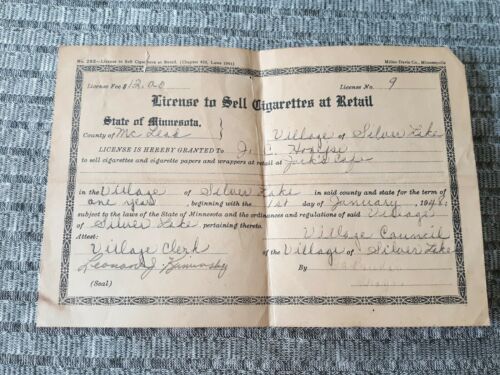 No. 293—License to Sell Cigarettes at Retail. (Chapter 423, Laws 1941) Miller-Davis Co., Minneapolis
License Fee $ 12.00 License No. 9
License to Sell Cigarettes at Retail
State of Minnesota,
County of Mc Leod } Village of Silver Lake
LICENSE IS HEREBY GRANTED TO J. C.
to sell cigarettes and cigarette papers and wrappers at retail at Jack's Cafe
in the Village of Silver Lake in said county and state for the term of
one year, beginning with the 1st day of January, 1946,
subject to the laws of the State of Minnesota and the ordinances and regulations of said Village
of Silver Lake pertaining thereto.
Attest: Village Council
Village Clerk of the Village of Silver Lake
Leonard J. Kaminsky By
(Seal)